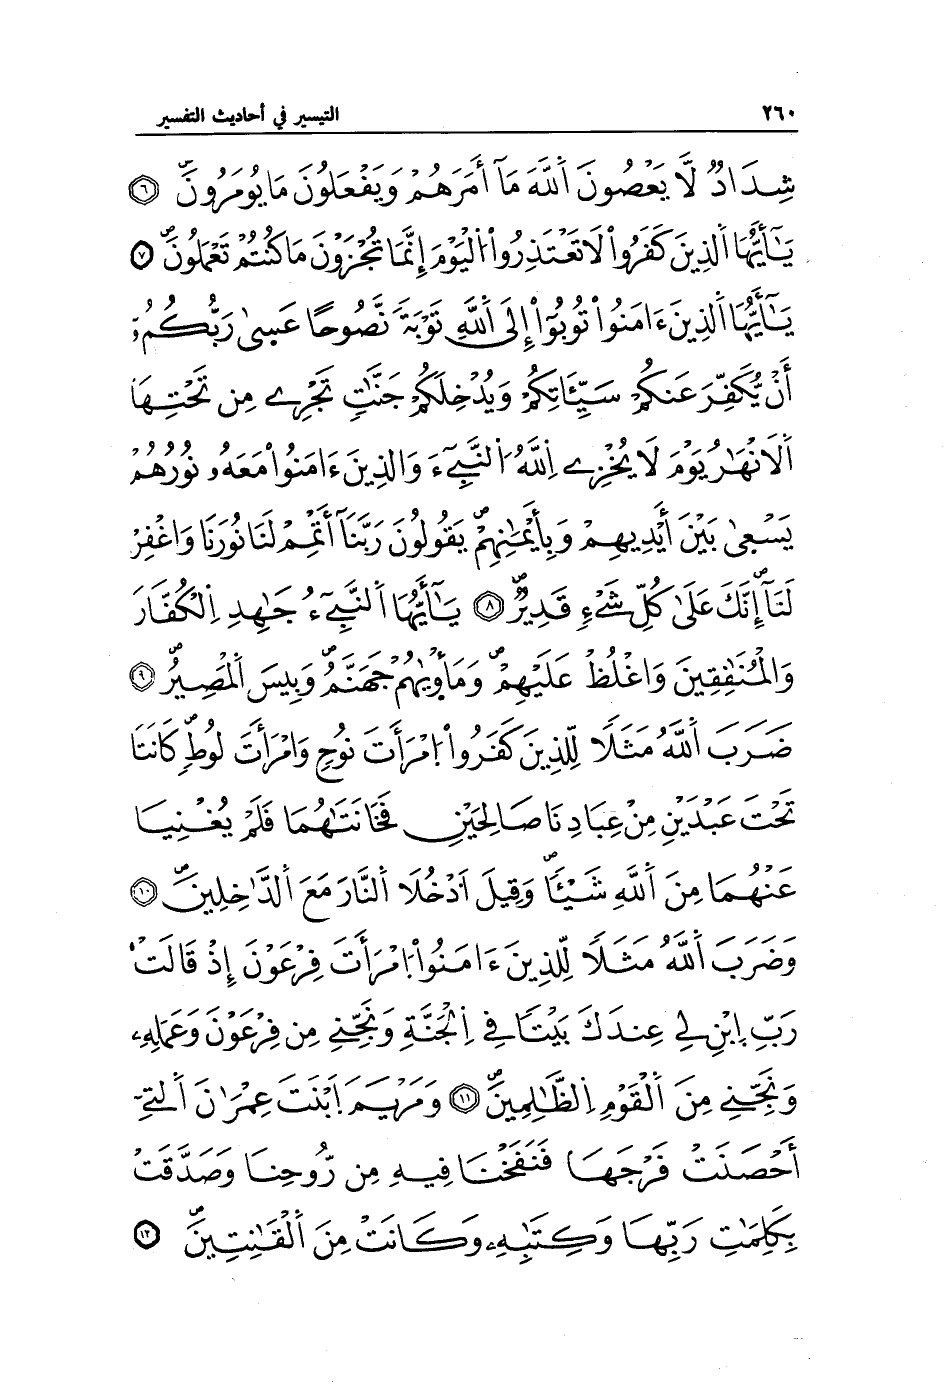 ٢٦٠ التيسير في أحاديث التفسير
شِدَادٌ لَّا يَعْصُونَ اَللَّهَ مَآ أَمَرَهُمْ وَيَفْعَلُونَ مَا يُومَرُونَ ۖ ٦
يَٰٓأَيُّهَا اَلذِينَ كَفَرُواْ لَا تَعْتَذِرُواْ اَلْيَوْمَ إِنَّمَا تُجْزَوْنَ مَا كُنتُمْ تَعْمَلُونَ ۖ ٧
يَٰٓأَيُّهَا اَلذِينَ ءَامَنُواْ تُوبُوٓاْ إِلَى اَللَّهِ تَوْبَةً نَّصُوحًا عَسَىٰ رَبُّكُمُۥٓ
أَنْ يُّكَفِّرَ عَنكُمْ سَيِّـَٔاتِكُمْ وَيُدْخِلَكُمْ جَنَّٰتٍ تَجْرِے مِن تَحْتِهَا
اَلَانْهَٰرُ يَوْمَ لَا يُخْزِے اِللَّهُ اَلنَّبِےٓءَ وَالذِينَ ءَامَنُواْ مَعَهُۥ نُورُهُمْ
يَسْعَىٰ بَيْنَ أَيْدِيهِمْ وَبِأَيْمَٰنِهِمْ ۖ يَقُولُونَ رَبَّنَآ أَتْمِمْ لَنَا نُورَنَا وَاغْفِرْ
لَنَآ ۖ إِنَّكَ عَلَىٰ كُلِّ شَےْءٍ قَدِيرٌ ۖ ٨ يَٰٓأَيُّهَا اَلنَّبِےٓءُ جَٰهِدِ اِلْكُفَّارَ
وَالْمُنَٰفِقِينَ وَاغْلُظْ عَلَيْهِمْ ۖ وَمَأْوَيٰهُمْ جَهَنَّمُ ۖ وَبِيسَ اَلْمَصِيرُ ۖ ٩
ضَرَبَ اَللَّهُ مَثَلًا لِّلذِينَ كَفَرُواْ اُمْرَأَتَ نُوحٍ وَامْرَأَتَ لُوطٍ ۖ كَانَتَا
تَحْتَ عَبْدَيْنِ مِنْ عِبَادِنَا صَٰلِحَيْنِ فَخَانَتَٰهُمَا فَلَمْ يُغْنِيَا
عَنْهُمَا مِنَ اَللَّهِ شَيْـًٔا ۖ وَقِيلَ اَدْخُلَا اَلنَّارَ مَعَ اَلدَّٰخِلِينَ ۖ ١٠
وَضَرَبَ اَللَّهُ مَثَلًا لِّلذِينَ ءَامَنُواْ اُمْرَأَتَ فِرْعَوْنَ إِذْ قَالَتْ
رَبِّ اِبْنِ لِے عِندَكَ بَيْتًا فِے اِلْجَنَّةِ وَنَجِّنِے مِن فِرْعَوْنَ وَعَمَلِهِۦ
وَنَجِّنِے مِنَ اَلْقَوْمِ اِلظَّٰلِمِينَ ۖ ١١ وَمَرْيَمَ اَبْنَتَ عِمْرَٰنَ اَلتِےٓ
أَحْصَنَتْ فَرْجَهَا فَنَفَخْنَا فِيهِ مِن رُّوحِنَا وَصَدَّقَتْ
بِكَلِمَٰتِ رَبِّهَا وَكِتَٰبِهِۦ وَكَانَتْ مِنَ اَلْقَٰنِتِينَ ۖ ١٢